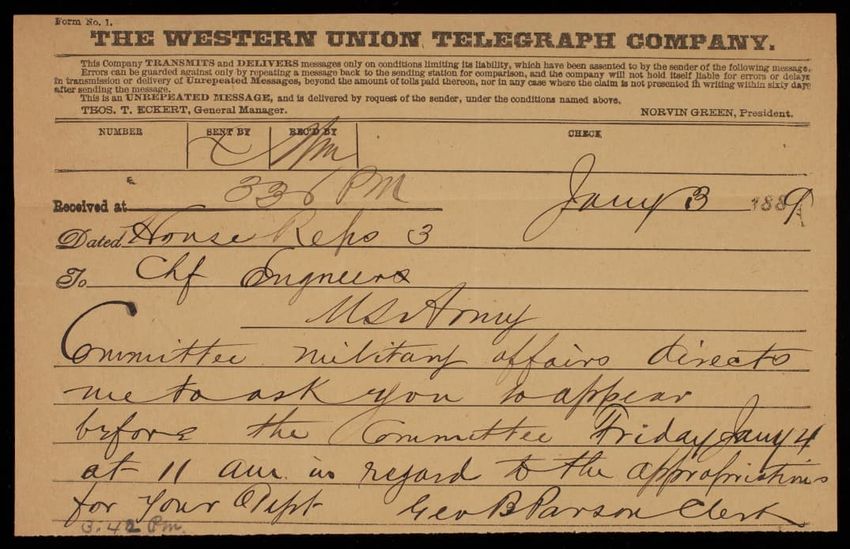 Form No. 1.
THE WESTERN UNION TELEGRAPH COMPANY.
This Company TRANSMITS and DELIVERS messages only on conditions limiting its liability, which have been assented to by the sender of the following message.
Errors can be guarded against only by repeating a message back to the sending station for comparison, and the company will not hold itself liable for errors or delays
in transmission or delivery of Unrepeated Messages, beyond the amount of tolls paid thereon, nor in any case where the claim is not presented in writing within sixty days
after sending the message.
This is an UNREPEATED MESSAGE, and is delivered by request of the sender, under the conditions named above.
THOS. T. ECKERT, General Manager. NORVIN GREEN, President.
NUMBER SENT BY REC'D BY CHECK
Received at 336 PM Jany 3 1889
Dated House Reps 3
To Chf Engneers
US Army
Committee military affairs directs
me to ask you to appear
before the Committee Friday Jany 4
at 11 am in regard to the appropriations
for your Dept Geo B Parson Clerk
3.42 Pm.